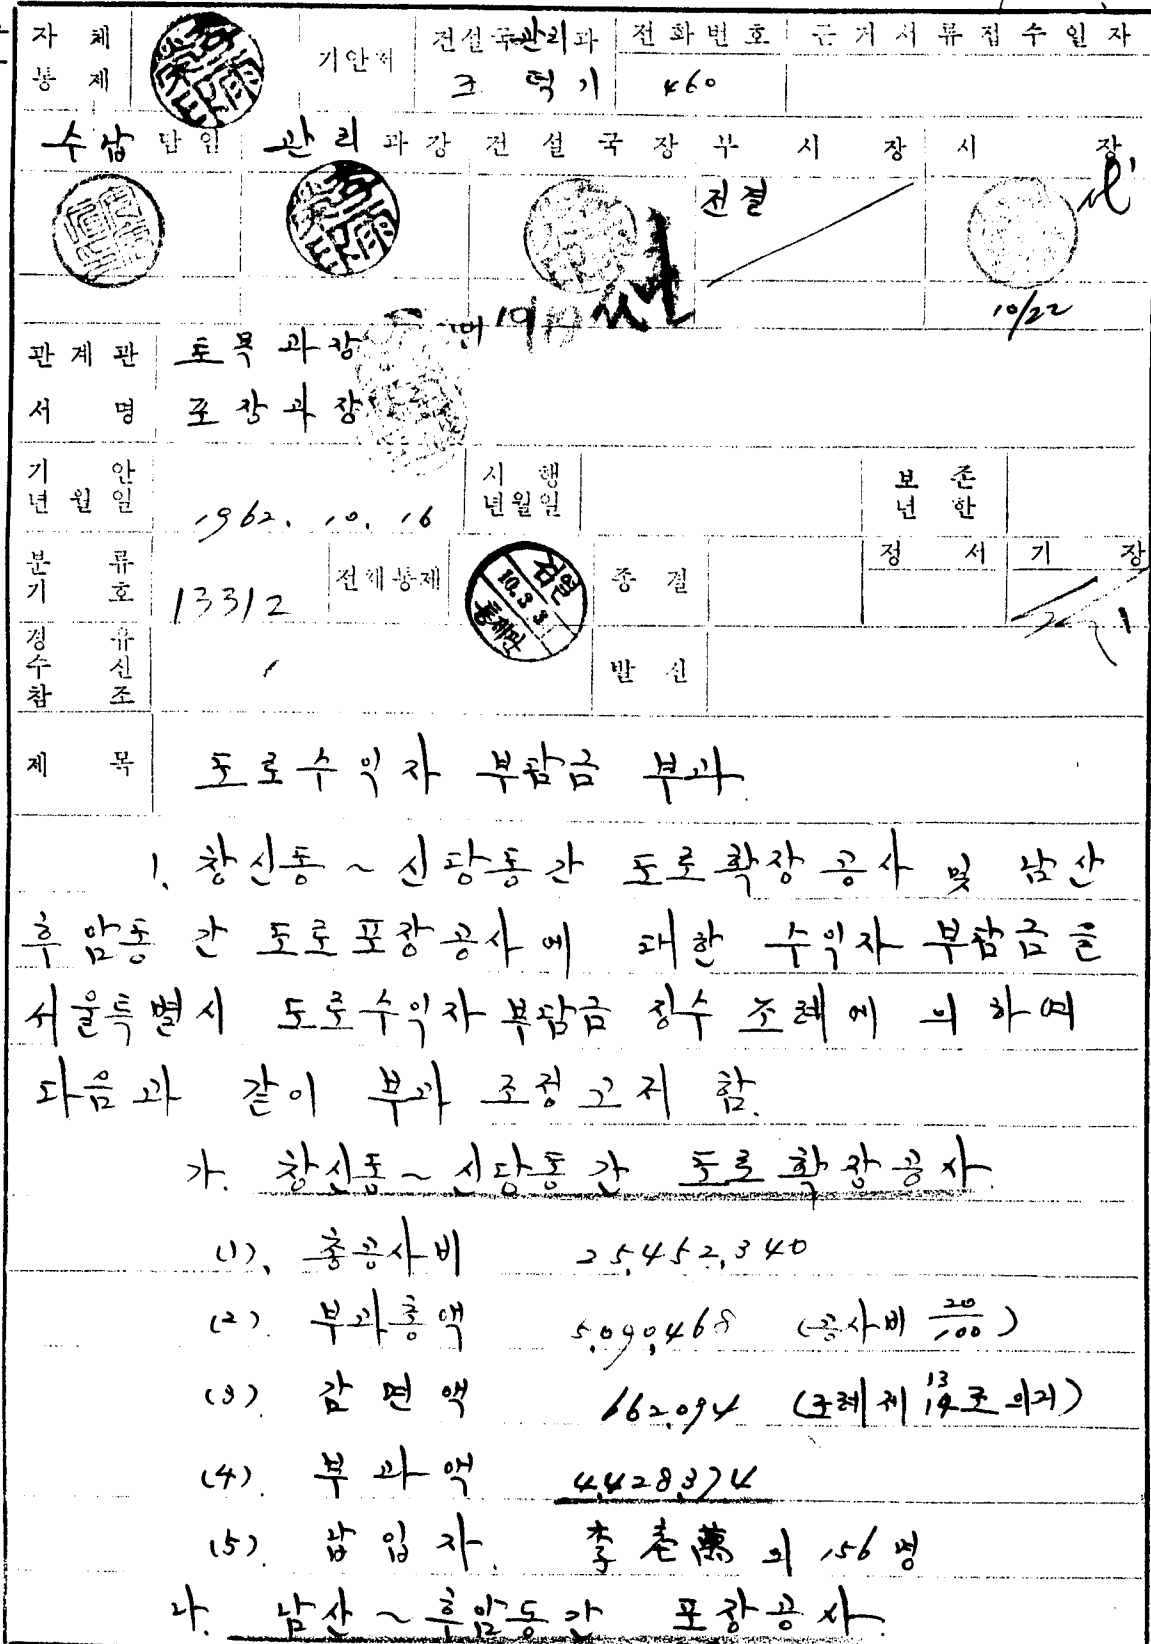 자체 기안처 건설국관리과 전화번호 근거서류접수일자
통제 조덕기 460
수납담임 관리과장 건설국장 부시장 시장
전결
10/22
관계관 토목과장
서명 포장과장
기안 시행 보존
년월일 1962. 10. 16 년월일 년한
분류 전체통제 종결 정서 기장
기호 13312
10.3 3
통제관
경유
수신 발신
참조
제목 도로수익자 부담금 부과
1. 창신동~신당동간 도로확장공사 및 남산
후암동간 도로포장공사에 대한 수익자 부담금을
서울특별시 도로수익자부담금 징수조례에 의하여
다음과 같이 부과 조정고지 함.
가. 창신동~신당동간 도로확장공사.
(1). 총공사비 25,452,340
(2). 부과총액 5,090,468 (공사비 20/100)
(3). 감면액 662,094 (조례제 13 14조 의거)
(4). 부과액 4,428,374
(5). 납입자. 李 萬 외 156명
나. 남산~후암동간 포장공사.